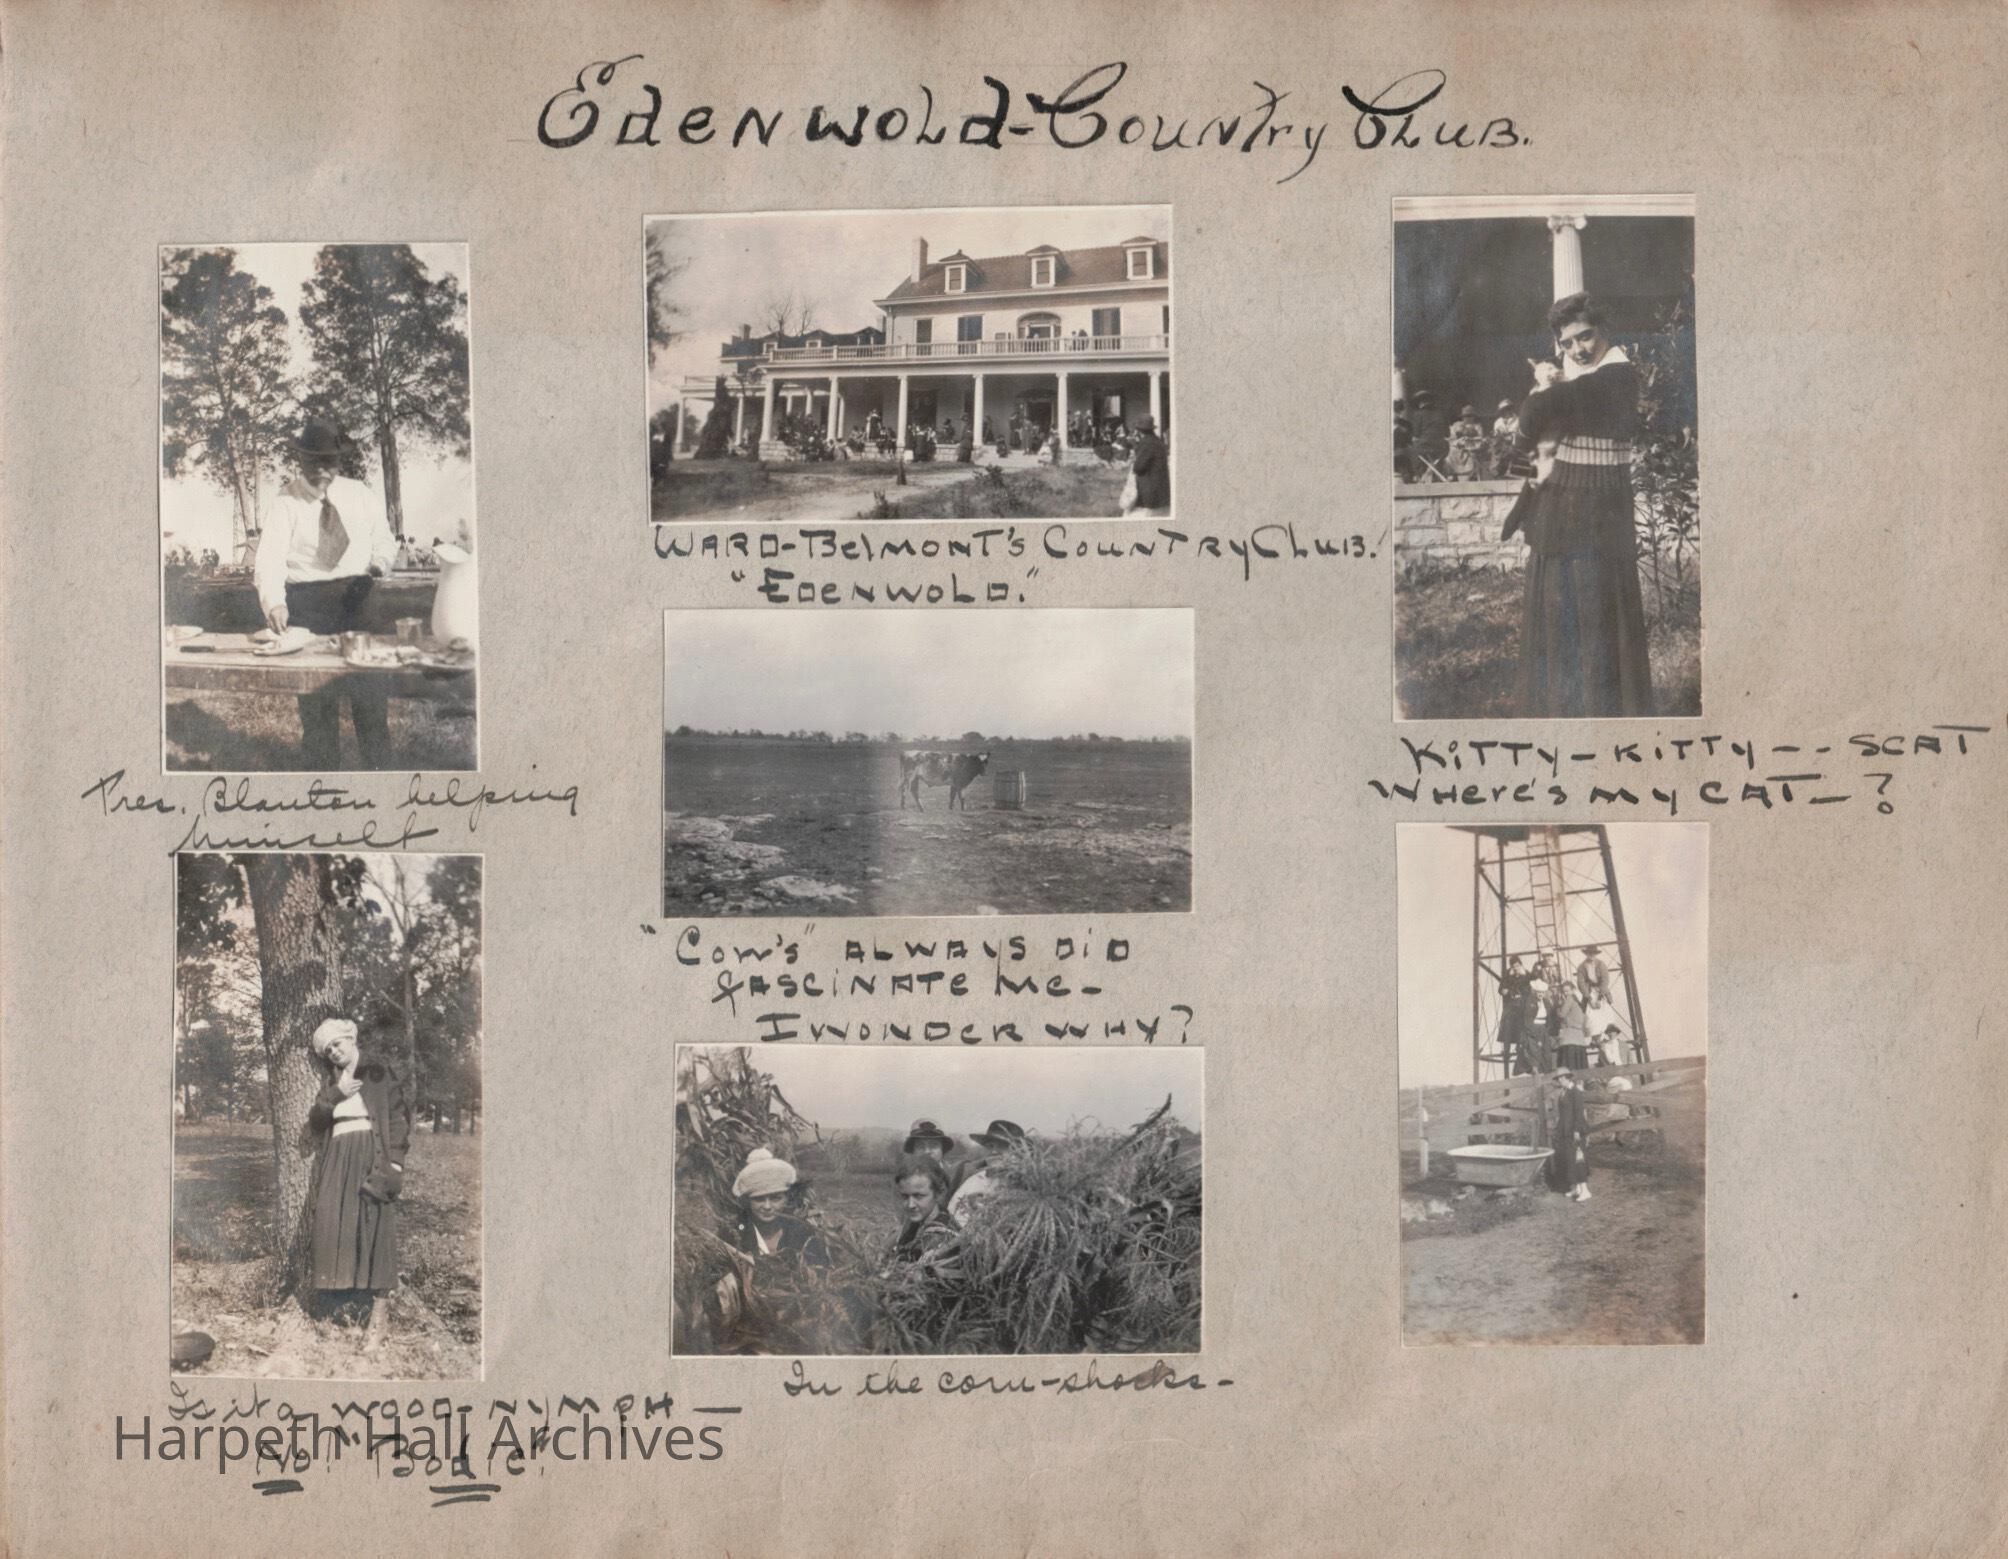 Edenwold-Country Club.
Pres. Blanton helping
himself
Is it a wood-nymph —
No! "Bodie".
Ward-Belmont's Country Club.
"Edenwold."
"Cow's" always did
fascinate me-
I wonder why?
In the corn-shocks-
Kitty-Kitty--- SCAT
Where's my cat-?
Harpeth Hall Archives